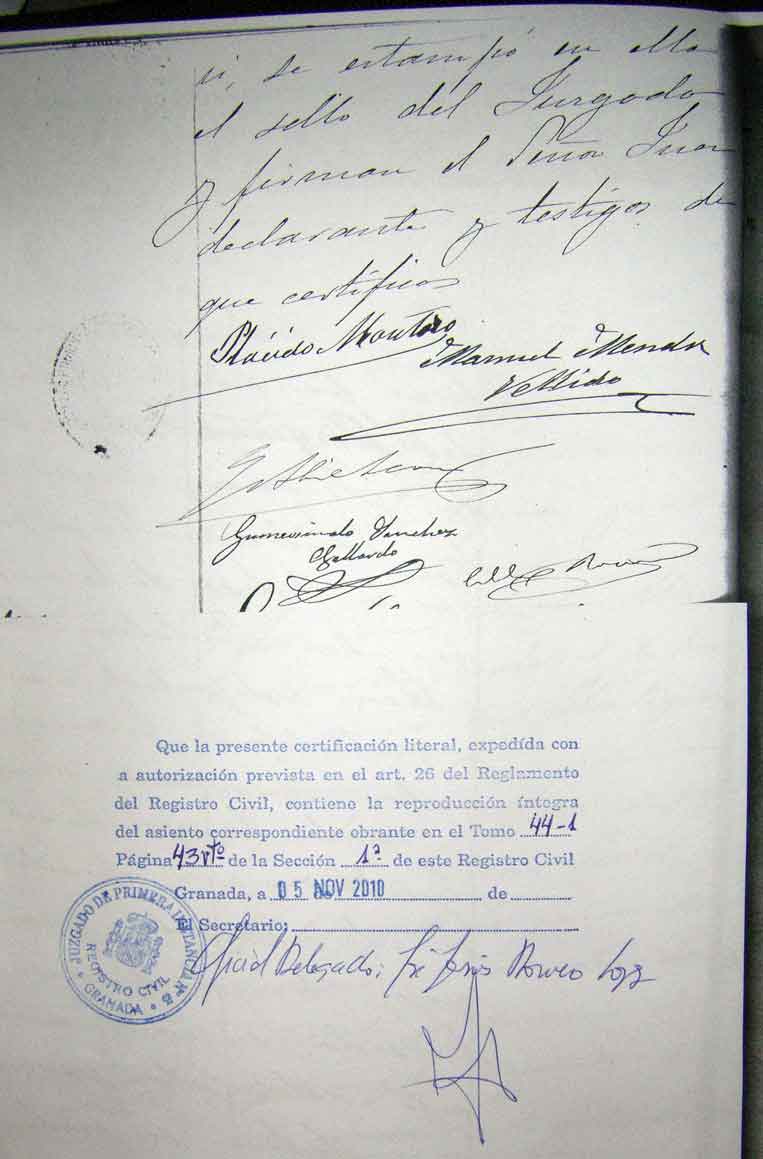 si, se estampó en ella
el sello del Juzgado
y firman el Señor Juez
declarante y testigos de
que certifico
Plácido Montero
Manuel Mendez
Vellido
Gumersindo Sanchez
Gallardo
Que la presente certificación literal, expedida con
a autorización prevista en el art. 26 del Reglamento
del Registro Civil, contiene la reproducción íntegra
del asiento correspondiente obrante en el Tomo 44-1
Página 43 vtº de la Sección 1ª de este Registro Civil
Granada, a 05 NOV 2010 de
El Secretario:
Oficial Delegado: Jesús
JUZGADO DE PRIMERA INSTANCIA Nº
REGISTRO CIVIL
GRANADA